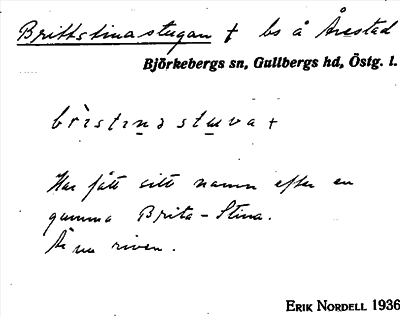 Brittstinastugan † bs å Årestad
Björkebergs sn, Gullbergs hd, Östg. l.
brìstɩna stuva +
Har fått sitt namn efter en
gumma Brita-Stina.
Är nu riven.
ERIK NORDELL 1936